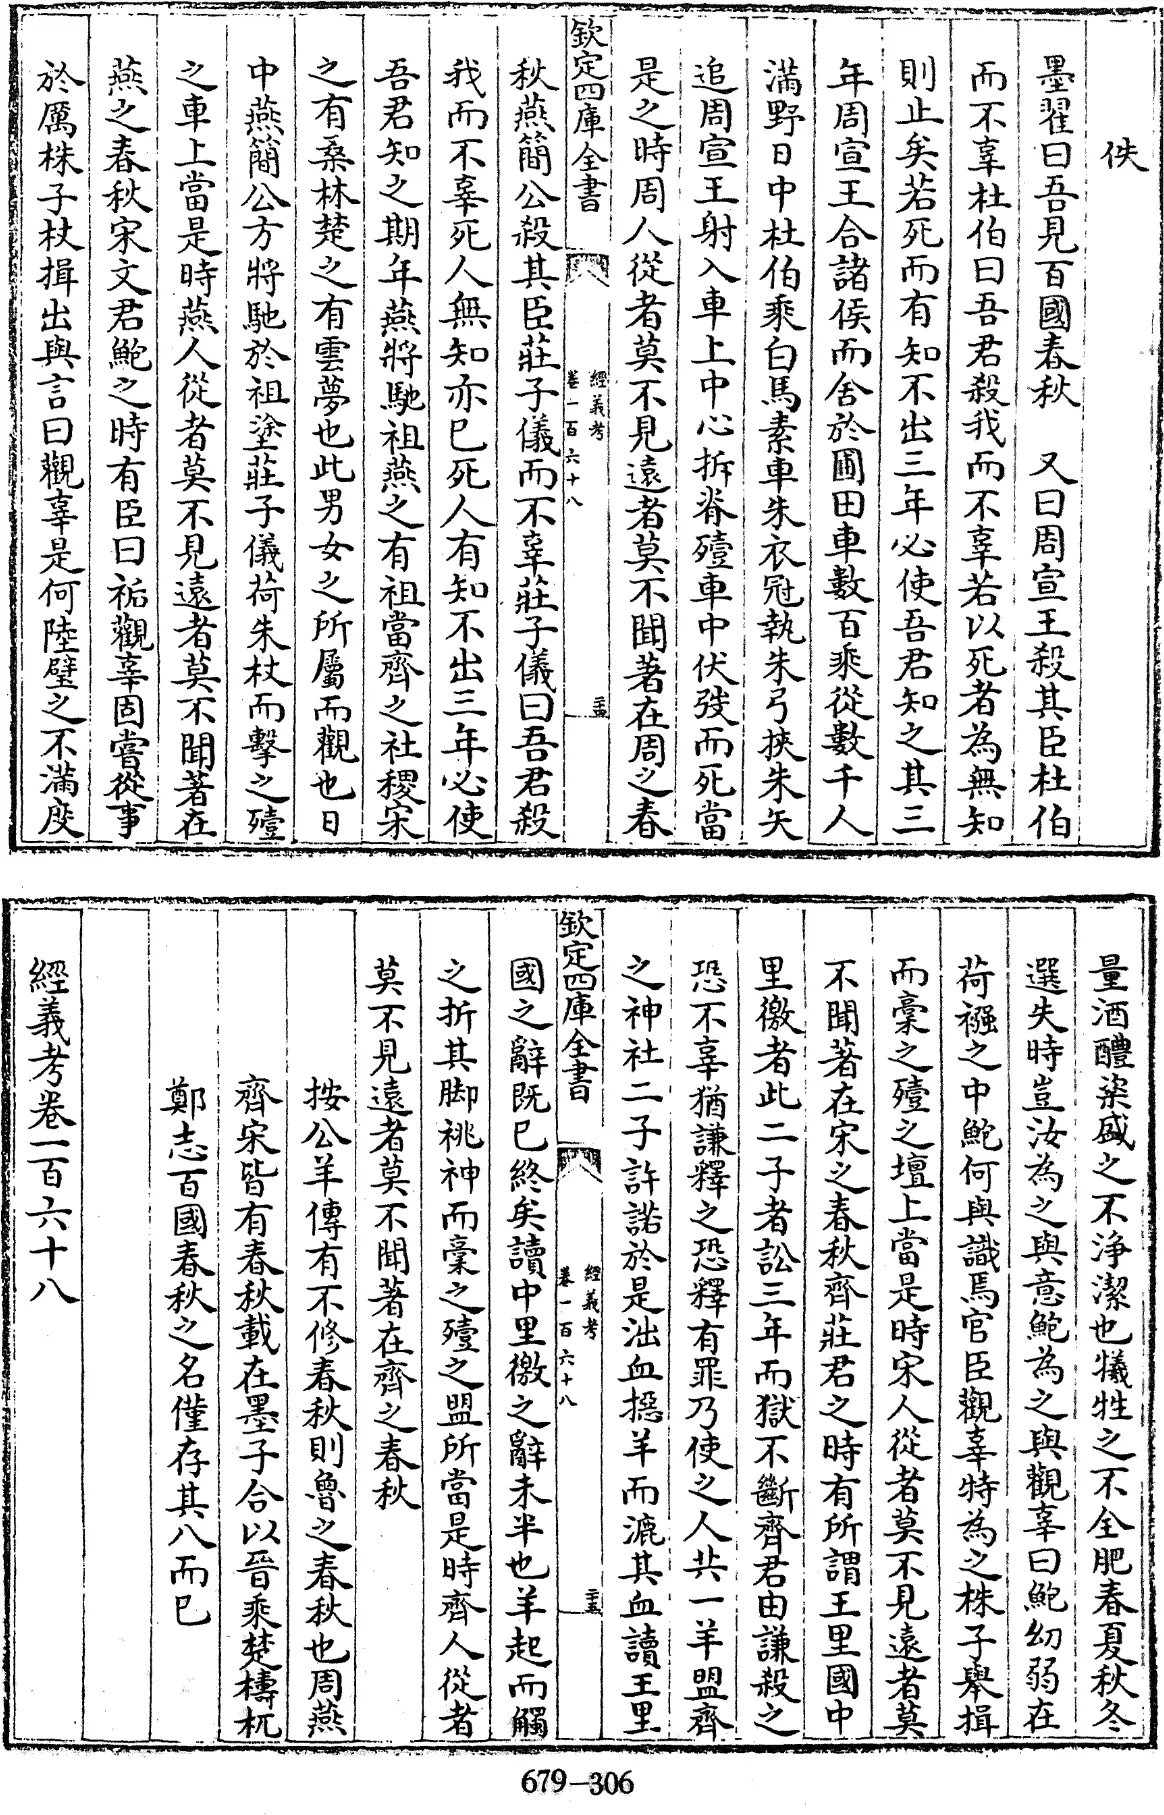 佚
墨翟曰吾見百國春秋 又曰周宣王殺其臣杜伯
而不辜杜伯曰吾君殺我而不辜若以死者為無知
則止矣若死而有知不出三年必使吾君知之其三
年周宣王合諸侯而舍於圃田車數百乘從數千人
滿野日中杜伯乘白馬素車朱衣冠執朱弓挾朱矢
追周宣王射入車上中心拆脊殪車中伏弢而死當
是之時周人從者莫不見遠者莫不聞著在周之春
欽定四庫全書
經義考
卷一百六十八
二十四
秋燕簡公殺其臣莊子儀而不辜莊子儀曰吾君殺
我而不辜死人無知亦已死人有知不出三年必使
吾君知之期年燕將馳祖燕之有祖當齊之社稷宋
之有桑林楚之有雲夢也此男女之所屬而觀也日
中燕簡公方將馳於祖塗莊子儀荷朱杖而擊之殪
之車上當是時燕人從者莫不見遠者莫不聞著在
燕之春秋宋文君鮑之時有臣曰祏觀辜固嘗從事
於厲株子杖揖出與言曰觀辜是何陸璧之不滿度
量酒醴粢盛之不淨潔也犧牲之不全肥春夏秋冬
選失時豈汝為之與意鮑為之與觀辜曰鮑幼弱在
荷襁之中鮑何與識焉官臣觀辜特為之株子舉揖
而槀之殪之壇上當是時宋人從者莫不見遠者莫
不聞著在宋之春秋齊莊君之時有所謂王里國中
里徼者此二子者訟三年而獄不斷齊君由謙殺之
恐不辜猶謙釋之恐釋有罪乃使之人共一羊盟齊
之神社二子許諾於是泏血摁羊而漉其血讀王里
欽定四庫全書
經義考
卷一百六十八
二十五
國之辭既已終矣讀中里徼之辭未半也羊起而觸
之折其脚祧神而槀之殪之盟所當是時齊人從者
莫不見遠者莫不聞著在齊之春秋
按公羊傳有不修春秋則魯之春秋也周燕
齊宋皆有春秋載在墨子合以晉乘楚檮杌
鄭志百國春秋之名僅存其八而已
經義考卷一百六十八
679-306